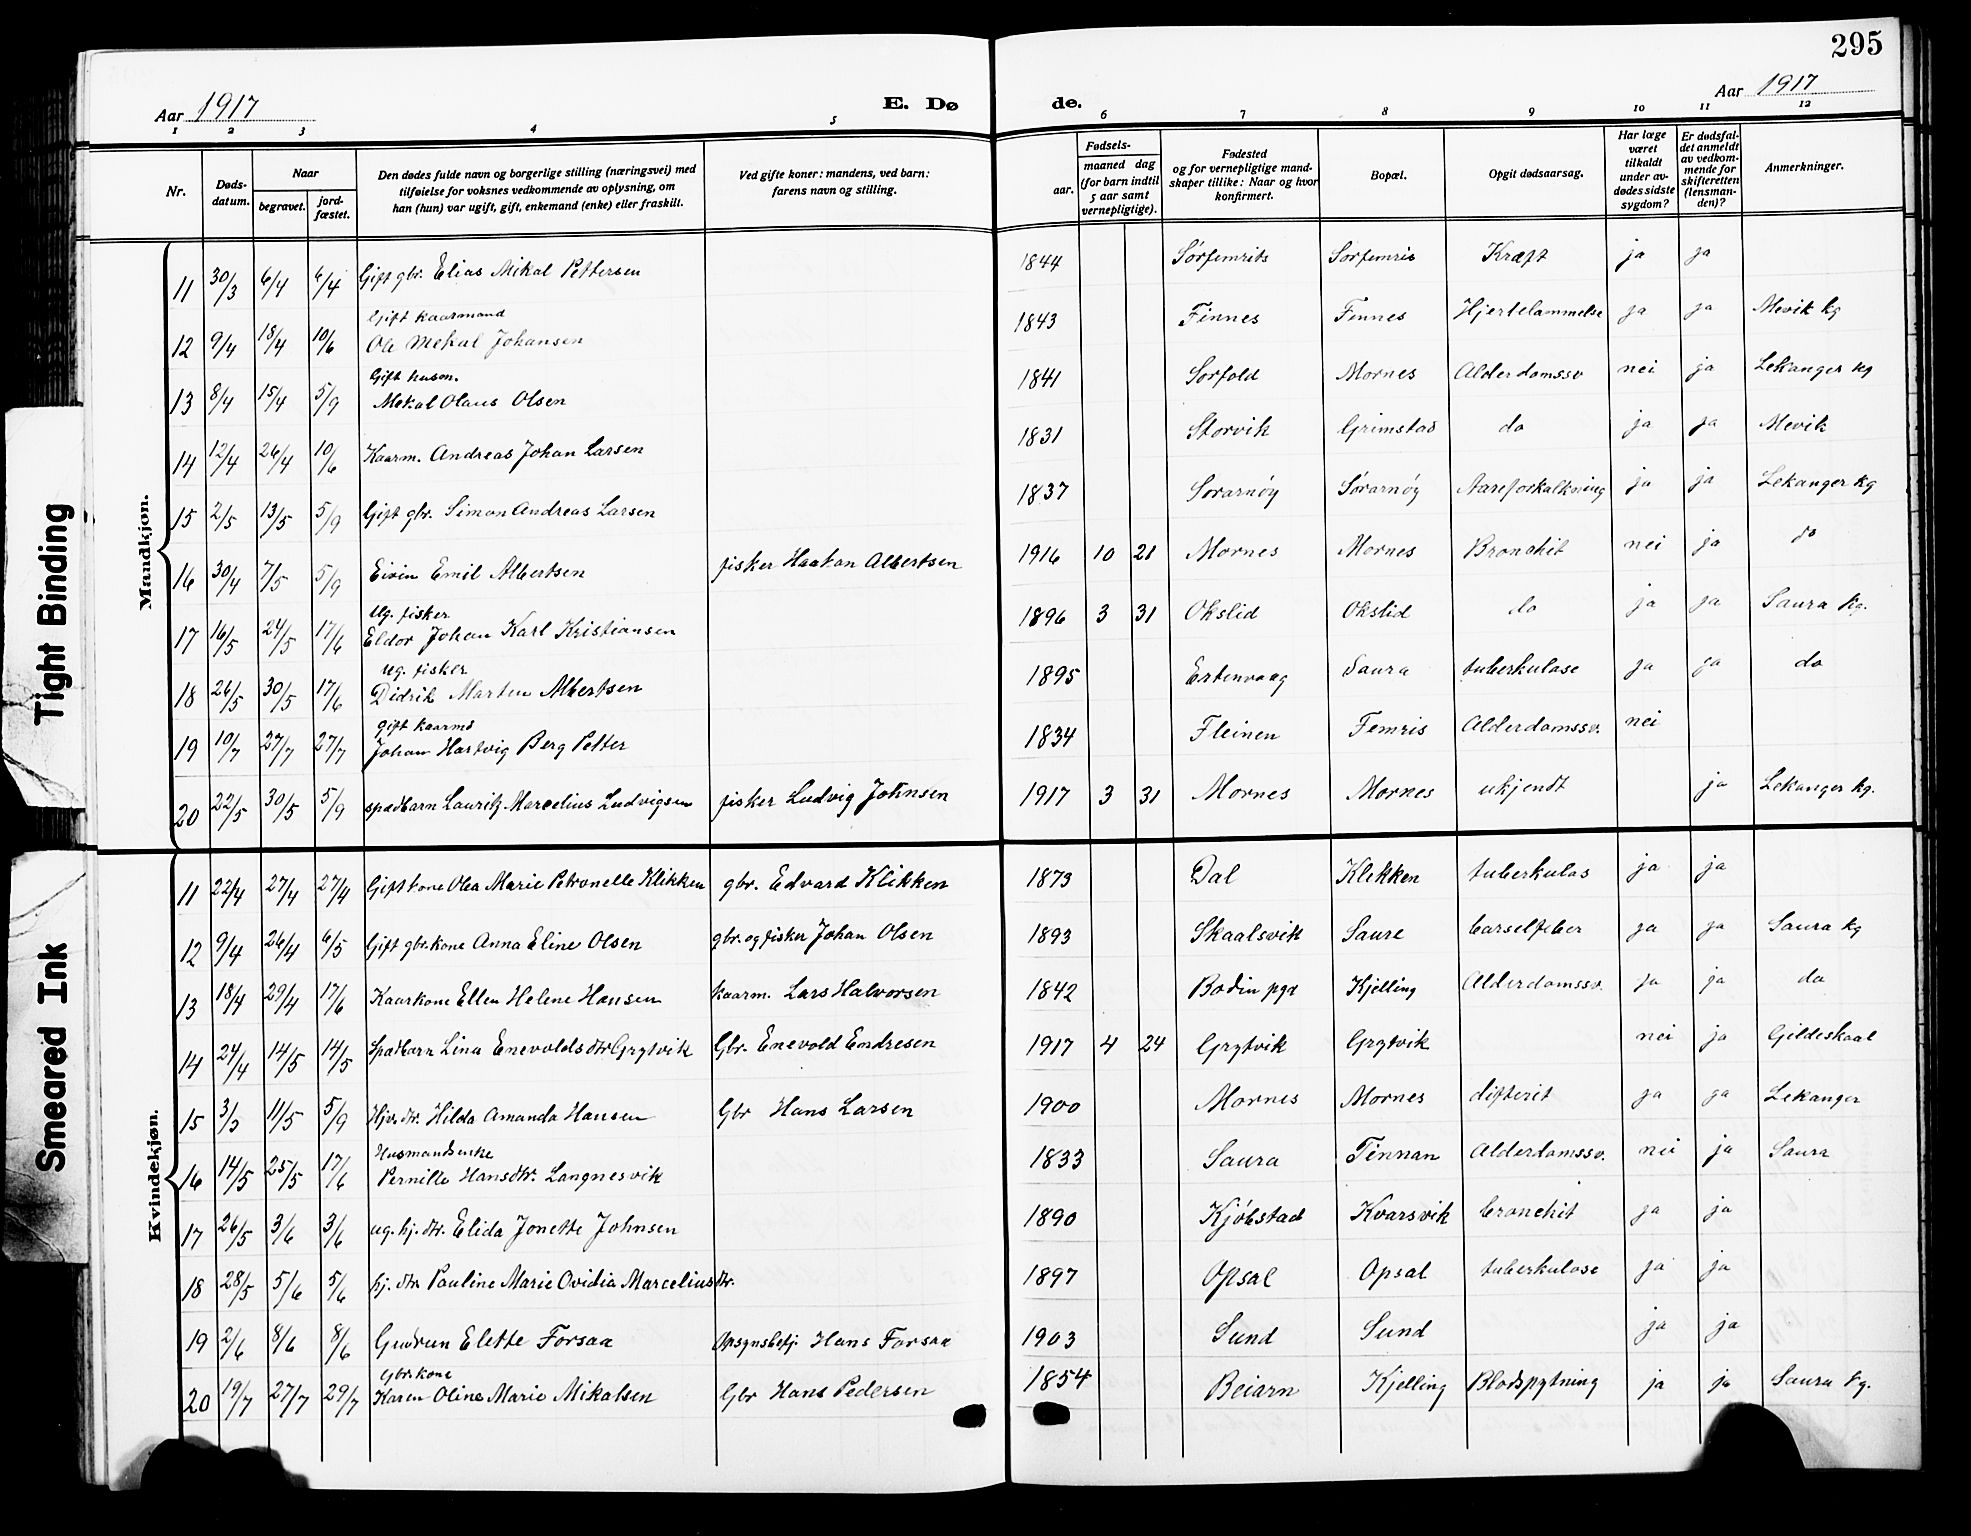 295
Aar 1917
E. Dø de.
Aar 1917
1 2 3 4 5 6 7 8 9 10 11 12
Nr.
Døds-datum.
Naar
begravet.
jord-fæstet.
Den dødes fulde navn og borgerlige stilling (næringsvei) med
tilføielse for voksnes vedkommende av oplysning, om
han (hun) var ugift, gift, enkemand (enke) eller fraskilt.
Ved gifte koner: mandens, ved barn:
farens navn og stilling.
Fødsels-
aar.
maaned dag
(for barn indtil
5 aar samt
vernepligtige).
Fødested
og for vernepligtige mand-
skaper tillike: Naar og hvor
konfirmert.
Bopæl.
Opgit dødsaarsag.
Har læge
været
tilkaldt
under av-
dødes sidste
sygdom?
Er dødsfal-
det anmeldt
av vedkom-
mende for
skifteretten
(lensman-
den)?
Anmerkninger.
Mandkjøn.
11 30/3 6/4 6/4 Gift gbr. Elias Mikal Pettersen 1844 Sørfemrits Sorfemris Kræft ja ja
Gift kaarmand
12 9/4 18/4 10/6 Ole Mekal Johansen 1843 Finnes Finnes Hjertelammelse ja ja Mevik kg
Gift husm.
13 8/4 15/4 5/9 Mekal Olaus Olsen 1841 Sorfold Mornes Alderdomssv nei ja Lekanger kg
14 12/4 26/4 10/6 Kaarm. Andreas Johan Larsen 1831 Storvik Grimstad do ja ja Mevik
15 2/5 13/5 5/9 Gift gbr. Simon Andreas Larsen 1837 Sorarnöy Sörarnöy Aareforkalkning ja ja Lekanger kg
16 30/4 7/5 5/9 Eivin Emil Albertsen fisker Haakon Albertsen 1916 10 21 Mornes Mornes Bronchit nei ja do
Ug. fisker
17 16/5 24/5 17/6 Eldor Johan Karl Kristiansen 1896 3 31 Okslid Okslid do ja ja Saura kg.
ug. fisker
18 26/5 30/5 17/6 Didrik Marten Albertsen 1895 Ertenvaag Saura tuberkulose ja ja do
gift kaarmd
19 10/7 27/7 27/7 Johan Hartvig Berg Petter 1834 Fleinen Femris Alderdomssv. nei
20 22/5 30/5 5/9 spædbarn Lauritz Marcelius Ludvigsen fisker Ludvig Johnsen 1917 3 31 Mornes Mornes ukjendt ja Lekanger kg.
Kvindekjøn.
11 22/4 27/4 27/4 Gift kone Olea Marie Petronelle Klikken gbr. Edvard Klikken 1873 Dal Klekken tuberkulos ja ja
12 9/4 26/4 6/5 Gift gbr.kone Anna Eline Olsen gbr. og fisker Johan Olsen 1893 Skaalsvik Saure barselfeber ja ja Saura kg
13 18/4 29/4 17/6 Kaarkone Ellen Helene Hansen kaarm. Lars Halvorsen 1842 Bodin pgd Kjelling Alderdomssv. ja ja do
14 24/4 14/5 14/5 Spædbarn Lina Enevoldsdtr Grytvik Gbr. Enevold Endresen 1917 4 24 Grytvik Grytvik nei ja Gildeskaal
15 3/5 11/5 5/9 Hjv. dtr. Hilda Amanda Hansen Gbr Hans Larsen 1900 Mornes Mornes difterit ja ja Lekanger
Husmandsenke
16 14/5 25/5 17/6 Pernille Hansdtr. Langnesvik 1833 Saura Finnan Alderdomssv. nei ja Saura
17 26/5 3/6 3/6 ug. hj. dtr. Elida Jonette Johnsen 1890 Kjöbstad Kvarsvik bronchit ja ja
18 28/5 5/6 5/6 hj. dtr Pauline Marie Ovidia Marcelius dtr. 1897 Opsal Opsal tuberkulose ja ja
19 2/6 8/6 8/6 Gudrun Elette Forsaa Opsynsbetj. Hans Forsaa 1903 Sund Sund ja ja
Gbr.kone
20 19/7 27/7 29/7 Karen Oline Marie Mikalsen Gbr Hans Pedersen 1854 Beiarn Kjelling Blodspytning ja ja Saura kg.
Tight Binding
Smeared Ink